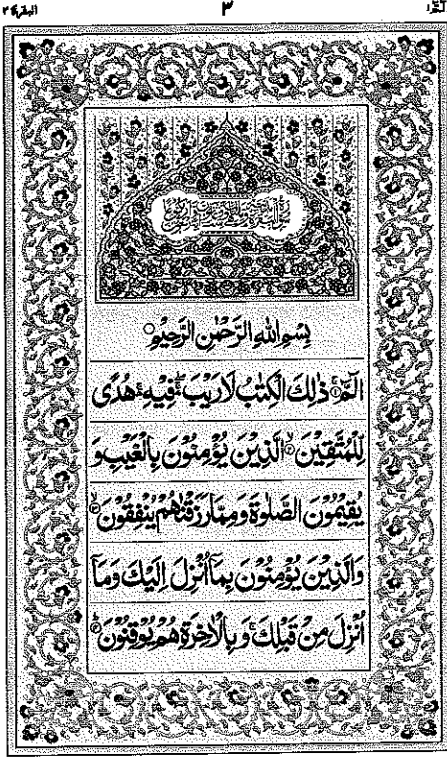 البقرة ٢
٣
الٓمّٓ ١
بِسْمِ اللّٰهِ الرَّحْمٰنِ الرَّحِيْمِ ○
الٓمّٓ ۚ۝١ ذٰلِكَ الْكِتٰبُ لَا رَيْبَ ۛۖ فِيْهِ ۛۚ هُدًى
لِّلْمُتَّقِيْنَ ۙ۝٢ الَّذِيْنَ يُؤْمِنُوْنَ بِالْغَيْبِ وَ
يُقِيْمُوْنَ الصَّلٰوةَ وَمِمَّا رَزَقْنٰهُمْ يُنْفِقُوْنَ ۙ۝٣
وَالَّذِيْنَ يُؤْمِنُوْنَ بِمَآ اُنْزِلَ اِلَيْكَ وَمَآ
اُنْزِلَ مِنْ قَبْلِكَ ۚ وَبِالْاٰخِرَةِ هُمْ يُوْقِنُوْنَ ؕ۝٤